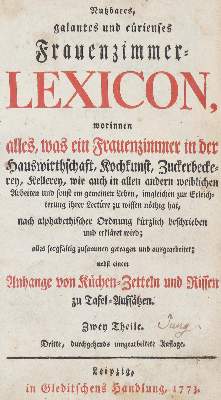 Nutzbares,
galantes und curieuses
Frauenzimmer-
LEXICON,
worinnen
alles, was ein Frauenzimmer in der
Hauswirthschaft, Kochkunst, Zuckerbecke-
rey, Kellerey, wie auch in allen andern weiblichen
Arbeiten und sonst im gemeinen Leben, imgleichen zur Erleich-
terung ihrer Lectüre zu wissen nöthig hat,
nach alphabethischer Ordnung kürzlich beschrieben
und erkläret wird;
alles sorgfältig zusammen getragen und ausgearbeitet;
nebst einem
Anhange von Küchen-Zetteln und Rissen
zu Tafel-Aufsätzen.
Zwey Theile.
Jung.
Dritte, durchgehends umgearbeitete Auflage.
Leipzig,
in Gleditschens Handlung, 1773.